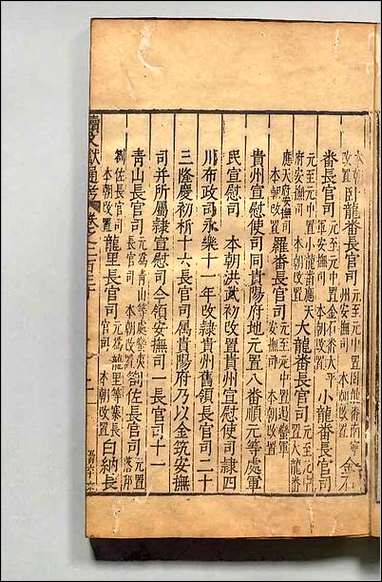 本朝改置 卧龍番長官司 元至元中置卧龍番南寧州安撫司 本朝改置 金石
番長官司 元至元中置金石番太平軍安撫司 本朝改置 小龍番長官司
元至元中置小龍 府安撫司 本朝改置 大龍番長官司 元至元中置大龍番
應天府安撫司 本朝改置 羅番長官司 元至元中置遏蠻軍安撫司 本朝改置
貴州宣慰使司同貴陽府地元置八番順元等處軍
民宣慰司 本朝洪武初改置貴州宣慰使司隸四
川布政司永樂十一年改隸貴州舊領長官司二十
三隆慶初析十六長官司屬貴陽府乃以金筑安撫
司并所屬隸宣慰司今領安撫司一長官司十一
青山長官司 元爲青山等處蠻夷長官司 本朝改置 劄佐長官司 元置落邦
劄佐長官司 本朝改置 龍里長官司 元爲龍里等寨長官司 本朝改置 白納長
續文獻通考 卷之二百三十